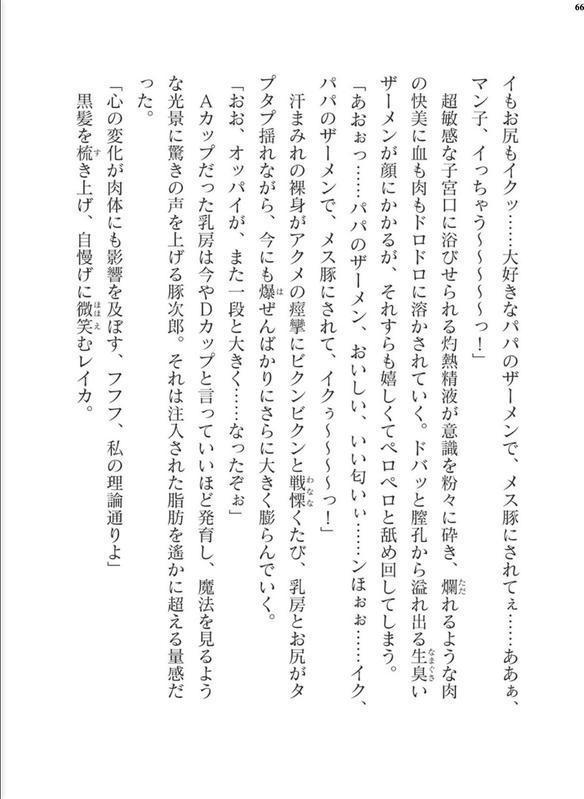 66
イもお尻もイクッ……大好きなパパのザーメンで、メス豚にされてぇ……ああぁ、
マン子、イっちゃう～～～～～っ！」
超敏感な子宮口に浴びせられる灼熱精液が意識を粉々に砕き、爛れるような肉
の快美に血も肉もドロドロに溶かされていく。ドバッと膣孔から溢れ出る生臭い
ザーメンが顔にかかるが、それすらも嬉しくてペロペロと舐め回してしまう。
「あおぉっ……パパのザーメン、おいしい、いい匂いぃ……ンほぉぉ……イク、
パパのザーメンで、メス豚にされて、イクぅ～～～～っ！」
汗まみれの裸身がアクメの痙攣にビクンビクンと戦慄くたび、乳房とお尻がタ
プタプ揺れながら、今にも爆ぜんばかりにさらに大きく膨らんでいく。
「おお、オッパイが、また一段と大きく……なったぞぉ」
Ａカップだった乳房は今やＤカップと言っていいほど発育し、魔法を見るよう
な光景に驚きの声を上げる豚次郎。それは注入された脂肪を遙かに超える量感だ
った。
「心の変化が肉体にも影響を及ぼす、フフフ、私の理論通りよ」
黒髪を梳き上げ、自慢げに微笑むレイカ。